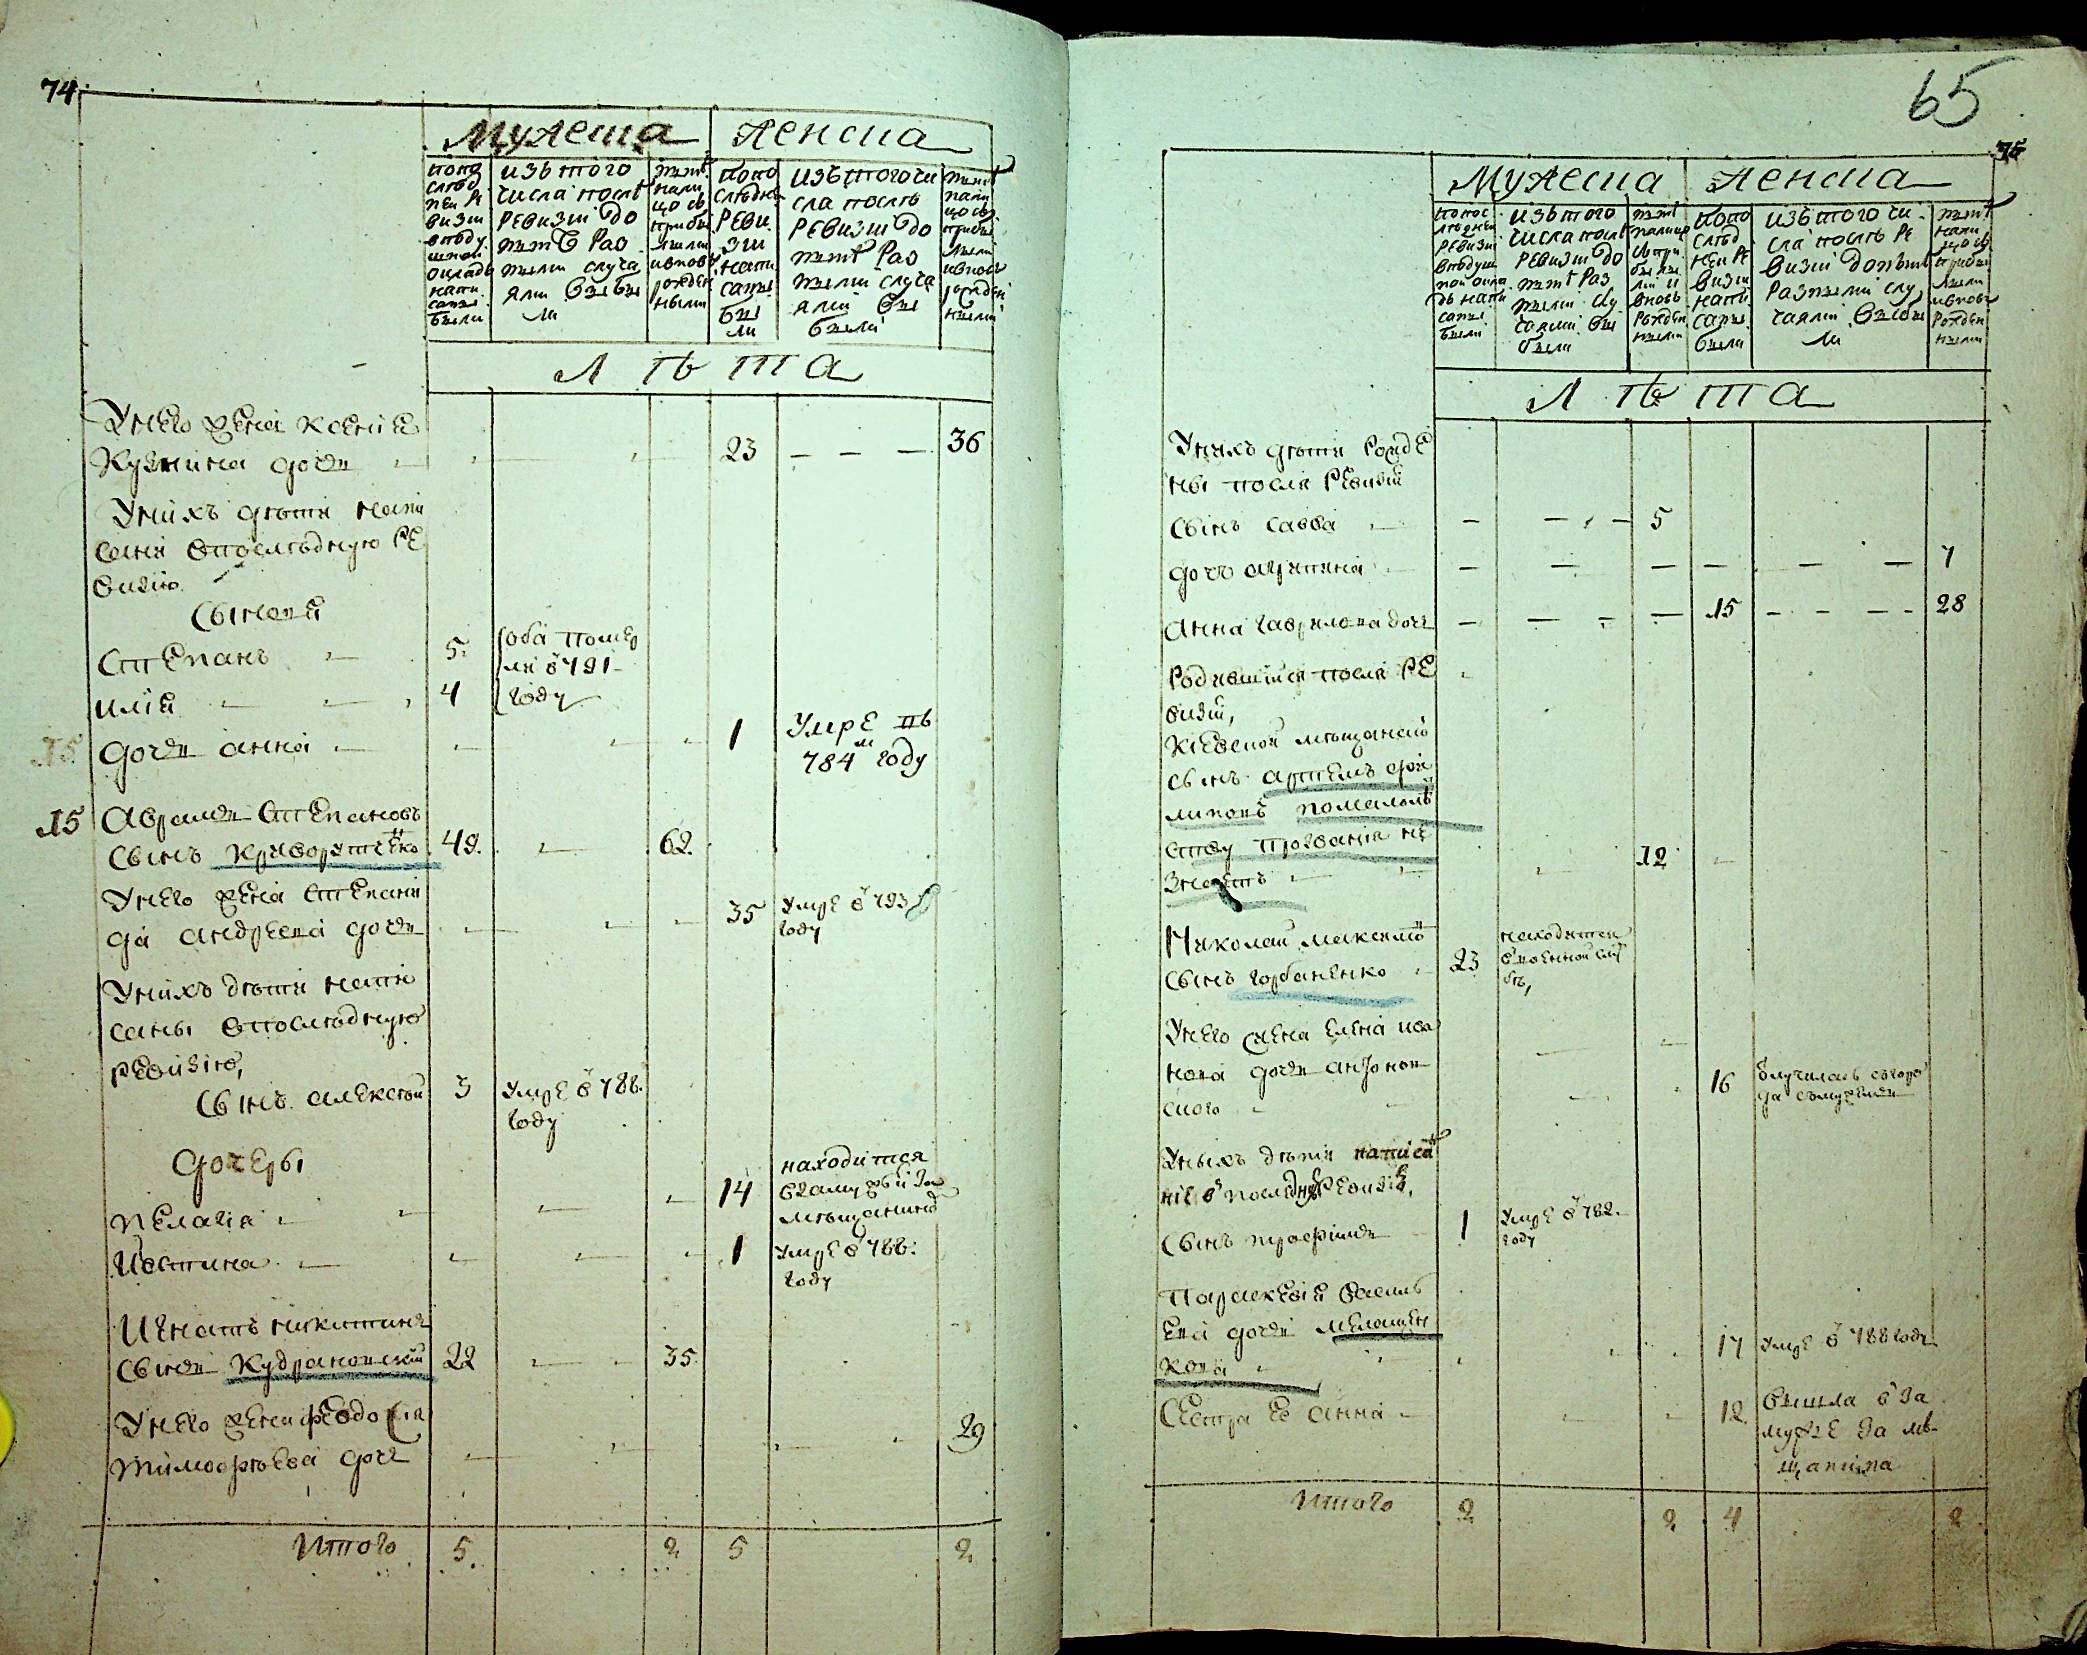 74
Мужеска
Женска
попо
слѣд
ней ре
визіи
в поду
шной
окладъ
напи
саны
были
изъ того
числа послѣ
ревизіи до
нынѣ раз
ными случа
ями выбы
ли
нынѣ
нали
цо съ
прибы
лыми
и вновь
рожден
ными
попо
слѣдней
реви
зіи
напи
саны
бы
ли
изъ того чи
сла послѣ
ревизіи до
нынѣ раз
ными случа
ями вы
были
нынѣ
нали
цо съ
прибы
лыми
и вновь
рожден
ными
Лѣта
У него жена ксенія
Кузмина дочь 23 — — — 36
У нихъ дѣти напи
саны впослѣдную ре
визію
Сыновя
Степанъ 5. оба помер
ли в 791
илія 4 году
дочь анна 1 Умре въ
784м году
15
15 Аврамъ Степановъ
Сынъ Криворотенко 49. 62.
У него жена Степани
да андреева дочь 35 Умре в 793
году
У нихъ дѣти напи
саны впослѣдную
ревизію,
Сынъ алексѣй 3 Умре в 788.
году
Дочеры
пелагія 14 находится
взамужѣ за
мѣщанином
Иустина 1 умре в 788.
году
Игнатъ никитинъ
Сынъ Кудрановский 22 35
У него жена феодосія
тимофѣева дочь 29
Итого 5. 2 5 2
65
75
Мужеска
Женска
попос
лѣдней
ревизіи
в подуш
ной окла
дъ напи
саны
были
изъ того
числа послѣ
ревизіи до
нынѣ раз
ными слу
чаями вы
были
нынѣ
налицо
съ при
былы
ми и
вновь
рожден
ными
попо
слѣд
ней ре
визіи
напи
саны
были
изъ того чи
сла послѣ ре
визіи до нынѣ
разными слу
чаями выбы
ли
нынѣ
нали
цо съ
прибы
лыми
и вновь
рожден
ными
Лѣта
У нихъ дѣти рожде
ны посля ревизіи
Сынъ Савва — — — 5
дочь — — — — — — 7
анна гаврилова дочь — — — — 15 — — — 28
Родившійся посля ре
визіи,
Кіевской мѣщанской
сынъ артемъ
липовъ помалолѣ
ству прозванія не
знаетъ 12
Николай максимовъ
Сынъ горбаненко 23 находится
в военной слу
бѣ,
У него жена елена ива
нова дочь антонов
ского 16 влучилась з горо
да с мужемъ
У ныхъ дѣти написа
ніе в последную ревизію,
Сынъ трофимъ 1 Умре в 782.
году
Параскевія василь
ева дочь мелащен
кова 17 умре в 788 году
Сестра ее анна 12. вышла в за
мужъе за мѣ
щанина
Итого 2 2 4 2